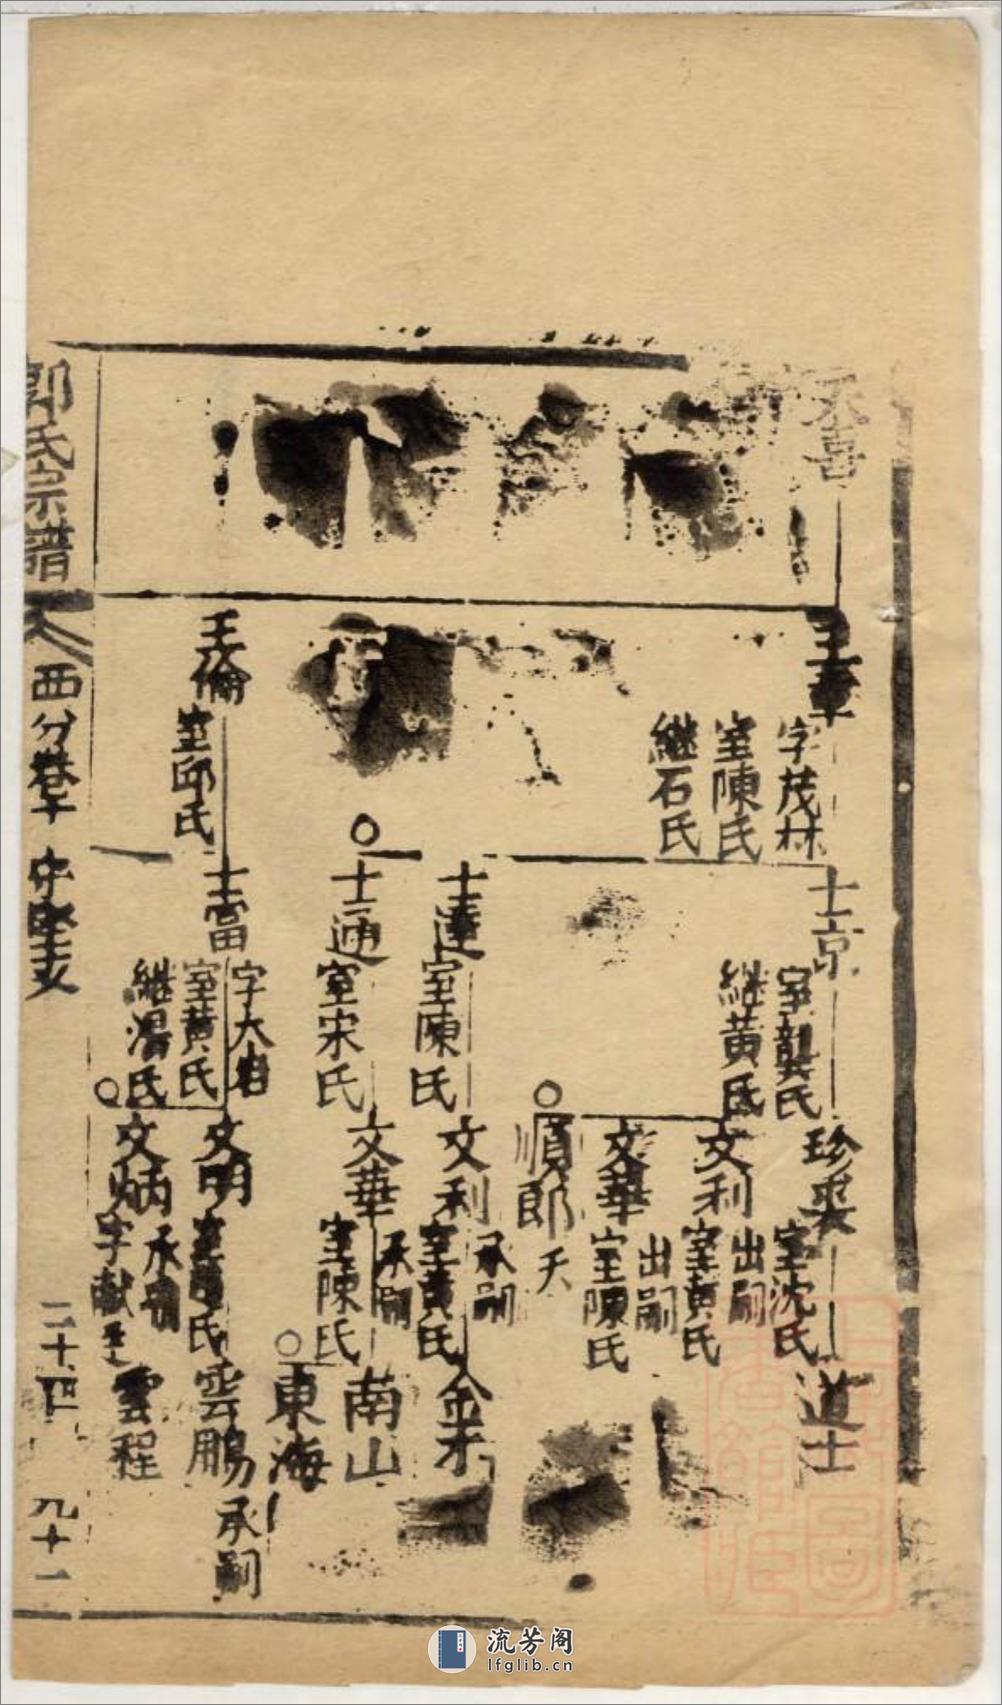 永喜
王章
字茂林
室陳氏
継石氏
王倫
室邱氏
士京
室龔氏
継黄氏
士達
室陳氏
士通
室宋氏
士富
字大
室黄氏
継湯氏
珍来
室沈氏
文利
出嗣
室黄氏
文華
出嗣
室陳氏
順郎
夭
文利
承嗣
室黄氏
文華
承嗣
室陳氏
文明
文炳
承嗣
字献
道士
金才
南山
東海
雲鵬
承嗣
雲程
郭氏宗譜
西分卷
二十四
九十一
流芳阁
lfglib.cn